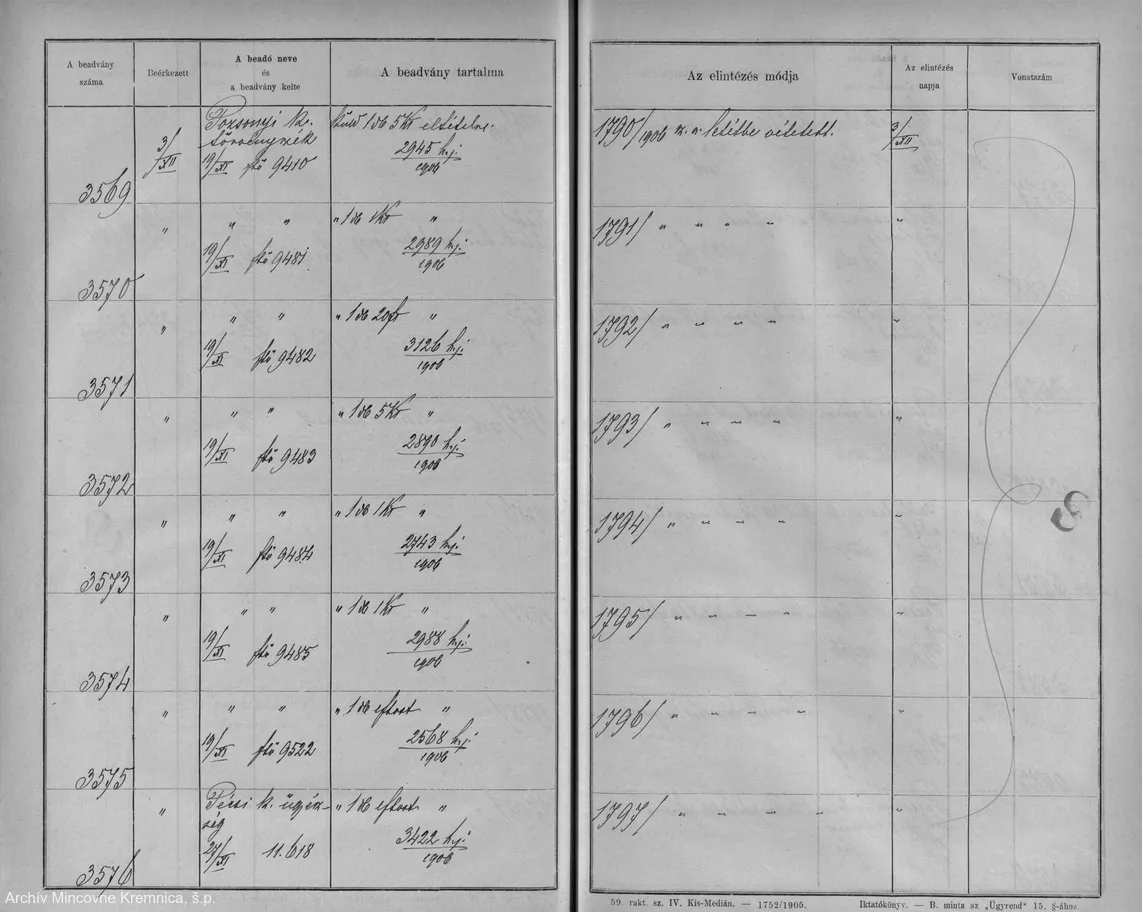 A beadvány száma
Beérkezett
A beadó neve és a beadvány kelte
A beadvány tartalma
Az elintézés módja
Az elintézés napja
Vonatszám
3569
3/XII
Pozsonyi k. törvényszék
19/XI 9410
1 db 5 Kr
2945 / 1906
1790/1906 letétbe vétetett.
3/XII
3570
" " "
19/XI 9481
" 1 db 1 Kr "
2989 / 1906
1791/ " " " "
"
3571
" " "
19/XI 9482
" 1 db 20 "
3126 / 1906
1792/ " " " "
"
3572
" " "
19/XI 9483
" 1 db 5 Kr "
2890 / 1906
1793/ " " " "
"
3573
" " "
19/XI 9484
" 1 db 1 Kr "
2743 / 1906
1794/ " " " "
"
3574
" " "
19/XI 9485
" 1 db 1 Kr "
2988 / 1906
1795/ " " " "
"
3575
" " "
19/XI 9522
" 1 db "
2568 / 1906
1796/ " " " "
"
3576
"
Pécsi k. ügyészség
27/XI 11.618
" 1 db "
3422 / 1906
1797/ " " " "
"
59. rakt. sz. IV. Kis-Medián. — 1752/1905.
Iktatókönyv. — B. minta az „Ügyrend" 15. §-ához.
Archív Mincovne Kremnica, š.p.